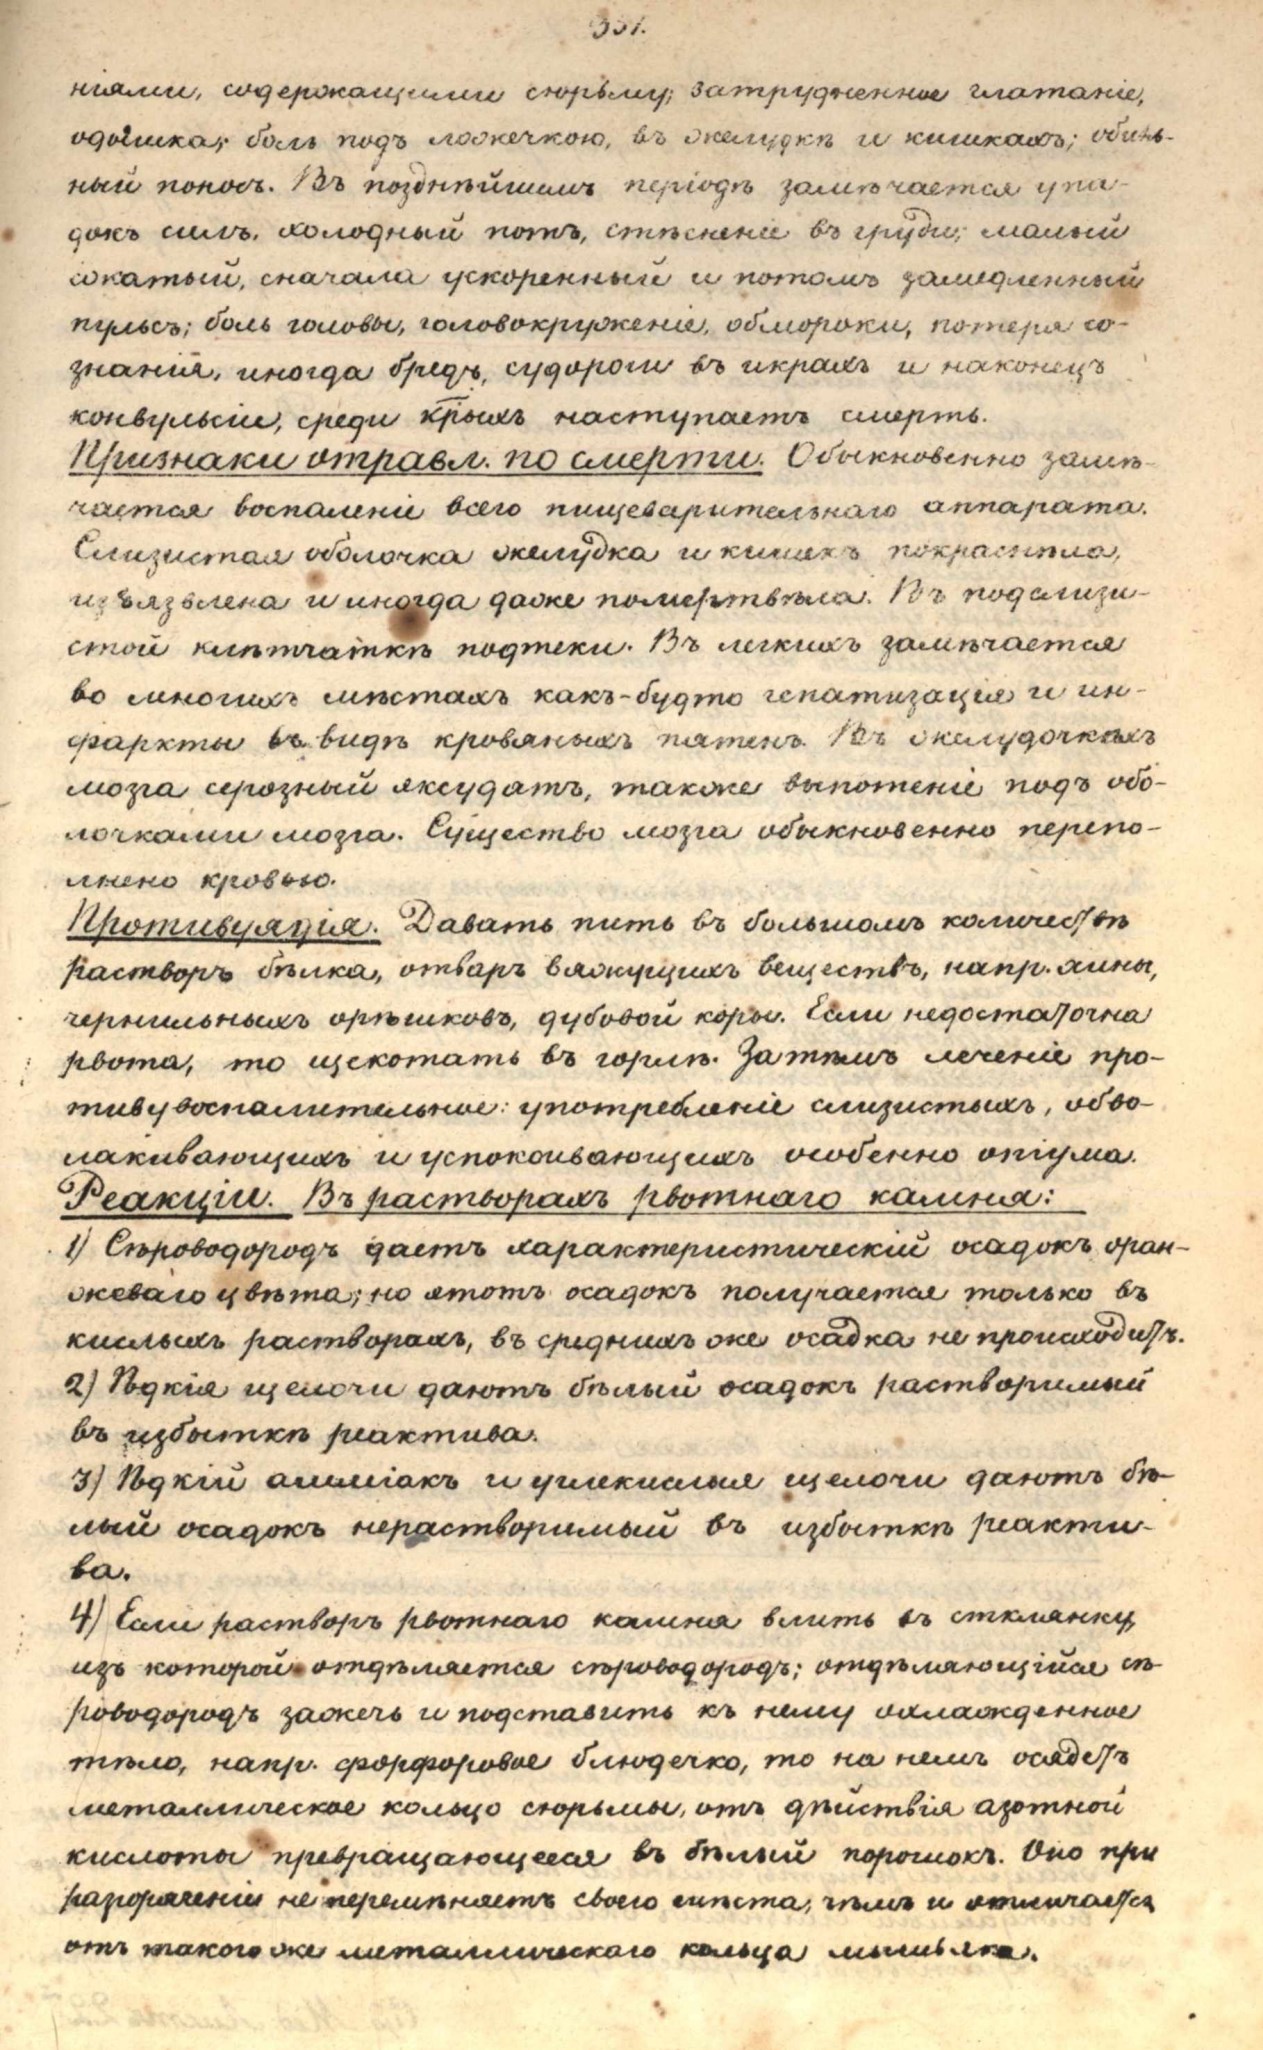 351.
ніями, содержащими сюрьму; затрудненное глотаніе,
одышка; боль подъ ложечкою, въ желудкѣ и кишкахъ; обиль-
ный поносъ. Въ позднѣйшемъ періодѣ замѣчается упа-
докъ силъ, холодный потъ, стѣсненіе въ груди; малый
сжатый, сначала ускоренный и потомъ замедленный
пульсъ; боль головы, головокруженіе, обмороки, потеря со-
знанія, иногда бредъ, судороги въ икрахъ и наконецъ
конвульсіи, среди крыхъ наступаетъ смерть.
Признаки отравл. по смерти. Обыкновенно замѣ-
чается воспаленіе всего пищеварительнаго аппарата.
Слизистая оболочка желудка и кишекъ покраснѣла,
изъязвлена и иногда даже помертвѣла. Въ подслизи-
стой клѣтчаткѣ подтеки. Въ легкихъ замѣчается
во многихъ мѣстахъ какъ-будто гепатизація и ин-
фаркты въ видѣ кровяныхъ пятенъ. Въ желудочкахъ
мозга серозный эксудатъ, также выпотеніе подъ обо-
лочками мозга. Существо мозга обыкновенно перепо-
лнено кровью.
Противуядія. Давать пить въ большомъ количествѣ
растворъ бѣлка, отваръ вяжущихъ веществъ, напр. хины,
чернильныхъ орѣшковъ, дубовой коры. Если недостаточна
рвота, то щекотать въ горлѣ. Затѣмъ леченіе про-
тивувоспалительное: употребленіе слизистыхъ, обво-
лакивающихъ и успокоивающихъ особенно опіума.
Реакціи. Въ растворахъ рвотнаго камня:
1) Сѣроводородъ даетъ характеристическій осадокъ оран-
жеваго цвѣта; но этотъ осадокъ получается только въ
кислыхъ растворахъ, въ среднихъ же осадка не происходитъ.
2) Ѣдкія щелочи даютъ бѣлый осадокъ растворимый
въ избыткѣ реактива.
3) Ѣдкій амміакъ и углекислыя щелочи даютъ бѣ-
лый осадокъ нерастворимый въ избыткѣ реакти-
ва.
4) Если растворъ рвотнаго камня влить въ стклянку,
изъ которой отдѣляется сѣроводородъ; отдѣляющійся сѣ-
роводородъ зажечь и подставить къ нему охлажденное
тѣло, напр. форфоровое блюдечко, то на немъ осядетъ
металлическое кольцо сюрьмы, отъ дѣйствія азотной
кислоты превращающееся въ бѣлый порошокъ. Оно при
разгоряченіи не перемѣняетъ своего мѣста, чѣмъ и отличается
отъ такого же металлическаго кольца мышьяка.